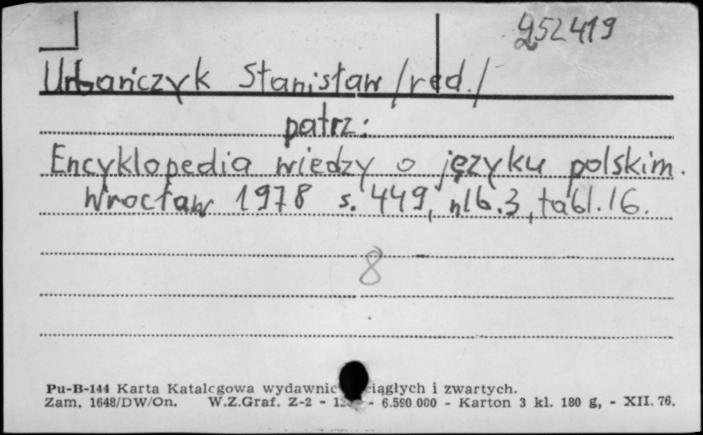 952419
Urbańczyk Stanisław /red./
patrz:
Encyklopedia wiedzy o języku polskim.
Wrocław 1978 s. 449, nlb. 3, tabl. 16.
8
Pu-B-144 Karta Katalogowa wydawnic ciągłych i zwartych.
Zam. 1648/DW/On. W.Z.Graf. Z-2 - - 6.590 000 - Karton 3 kl. 180 g, - XII. 76.